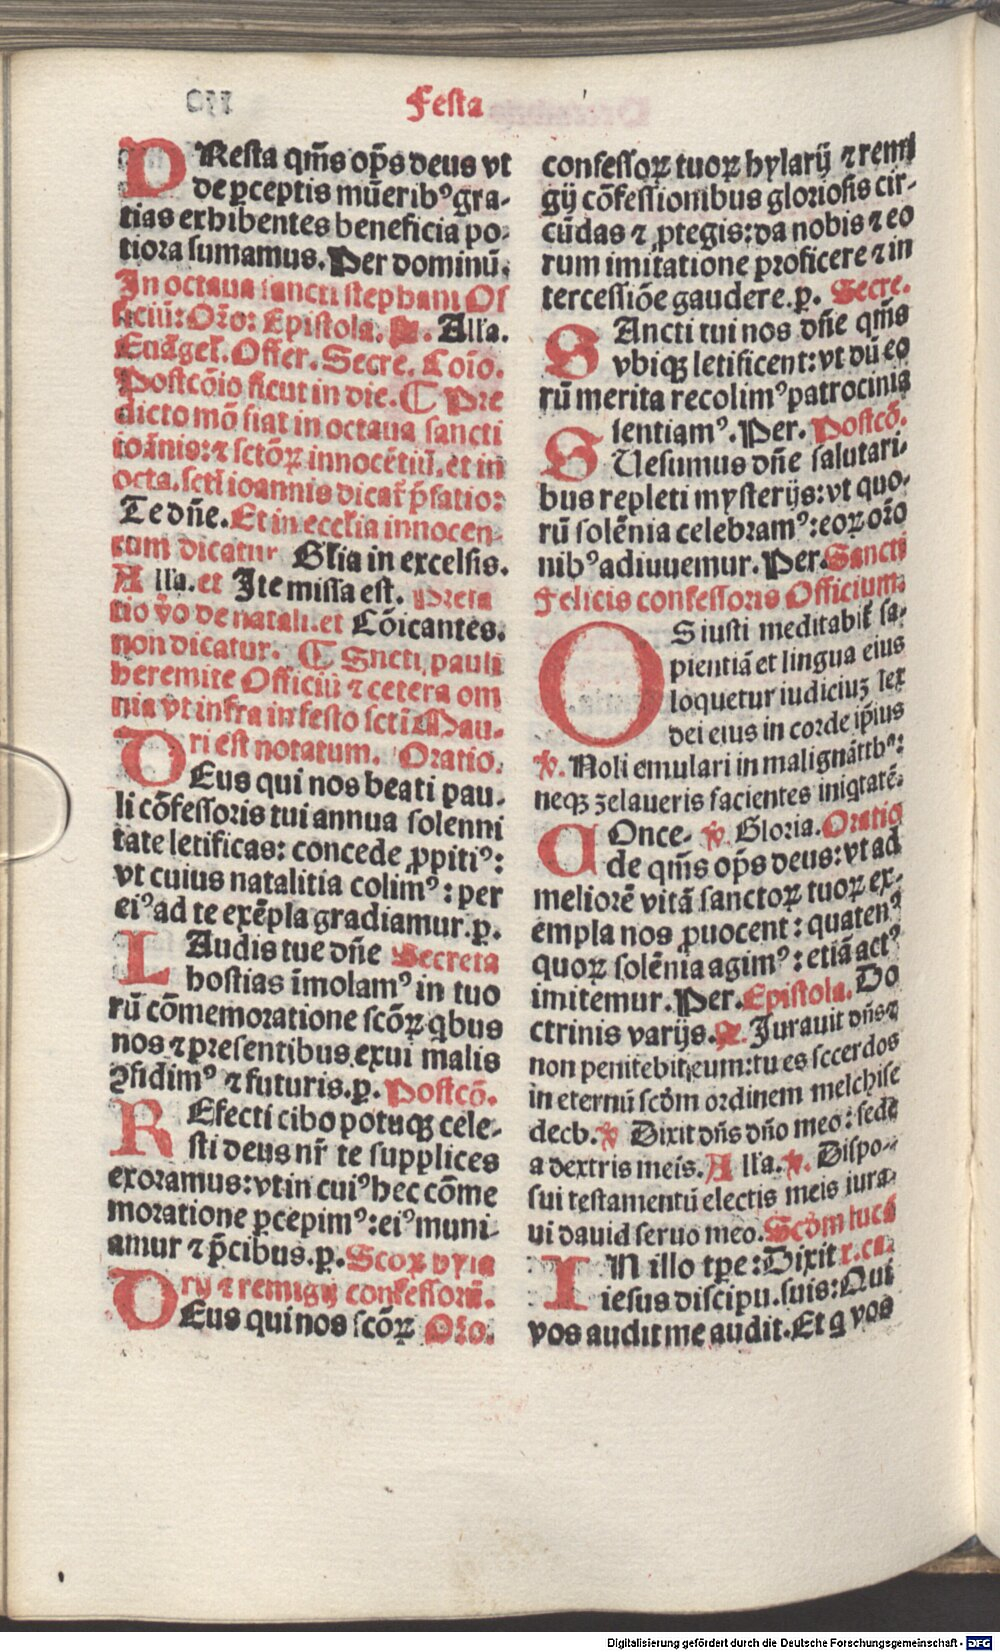 Festa
PResta qm̄s op̄s deus vt
de p̱ceptis mūeribꝰ gra-
tias exhibentes beneficia po-
tiora sumamus. Per dominū.
In octaua sancti stephani Of
ficiū: Or̄o: Epistola. Allˀa.
Euāgel̄. Offer. Secre. Cōio.
Postcōio sicut in die. ¶ Pre
dicto mō fiat in octaua sancti
ioānis: ⁊ sctōꝝ innocētiū. et in
octa. scti ioannis dicat̄ p̄fatio:
Te dn̄e. Et in ecclˀia innocen-
tum dicatur Glˀia in excelsis.
Allˀa. et Ite missa est. Prefa
tio v̄o de natali. et Cōicantes.
non dicatur. ¶ Sncti pauli
heremite Officiū ⁊ cetera om
nia vt infra in festo scti Mau-
ri est notatum. Oratio.
DEus qui nos beati pau-
li cōfessoris tui annua solenni
tate letificas: concede ꝓpitiꝰ:
vt cuius natalitia colimꝰ: per
eiꝰ ad te exēpla gradiamur. p̱.
LAudis tue dn̄e Secreta
hostias īmolamꝰ in tuo
rū cōmemoratione scōꝝ qbus
nos ⁊ p̱resentibus exui malis
ꝯfidimꝰ ⁊ futuris. p̱. Postcō.
REfecti cibo potuqꝫ cele-
sti deus nr̄ te supplices
exoramus: vt in cuiꝰ hec cōme
moratione p̱cepimꝰ: eiꝰ muni-
amur ⁊ p̄cibus. p̱. Scoꝝ hyla
rij ⁊ remigij confessorū.
DEus qui nos scōꝝ Or̄o.
confessoꝝ tuoꝝ hylarij ⁊ remi
gij cōfessionibus gloriosis cir-
cūdas ⁊ ꝓtegis: da nobis ⁊ eo
rum imitatione proficere ⁊ in
tercessiōe gaudere. p̱. Secre.
SAncti tui nos dn̄e qm̄s
vbiqꝫ letificent: vt dū eo
rū merita recolimꝰ patrocinia
sentiamꝰ. Per. Postcō.
QUesumus dn̄e salutari-
bus repleti mysterijs: vt quo-
rū solēnia celebramꝰ: eoꝝ or̄o
nibꝰ adiuuemur. Per. Sancti
Felicis confessoris Officium.
OS iusti meditabit̄ sa-
pientiā et lingua eius
loquetur iudiciuꝫ lex
dei eius in corde ip̄ius
℣. Noli emulari in malignātibꝰ:
neqꝫ zelaueris facientes iniqtatē.
COnce- ℣. Gloria. Oratio
de qm̄s op̄s deus: vt ad
meliorē vitā sanctoꝝ tuoꝝ ex-
empla nos ꝓuocent: quatenꝰ
quoꝝ solēnia agimꝰ: etiā actꝰ
imitemur. Per. Epistola. Do
ctrinis varijs. Jurauit dn̄s ⁊
non penitebit eum: tu es sccerdos
in eternū scdm̄ ordinem melchise
dech. ℣. Dixit dn̄s dn̄o meo: sede
a dextris meis. Allˀa. ℣. Dispo-
sui testamentū electis meis iura-
ui dauid seruo meo. Scdm̄ lucā
IN illo tp̱e: Dixit x. ca.
iesus discipu. suis: Qui
vos audit me audit. Et q vos
Digitalisierung gefördert durch die Deutsche Forschungsgemeinschaft - DFG